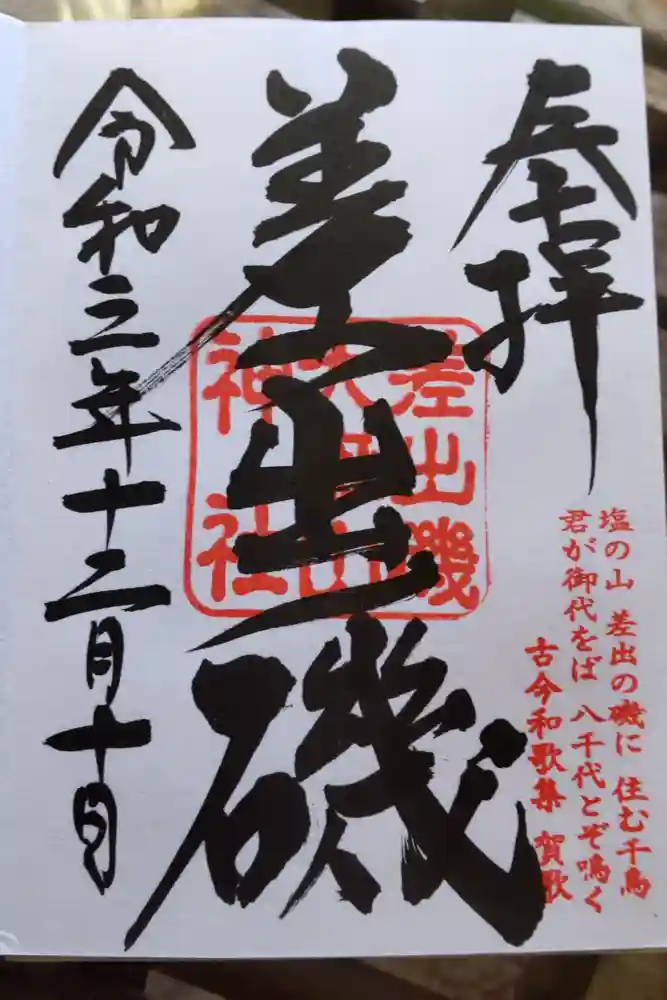 奉拝
塩の山 差出の磯に 住む千鳥
君が御代をば 八千代とぞ鳴く
古今和歌集 賀歌
差出磯
差出磯
神社
令和三年十二月十日